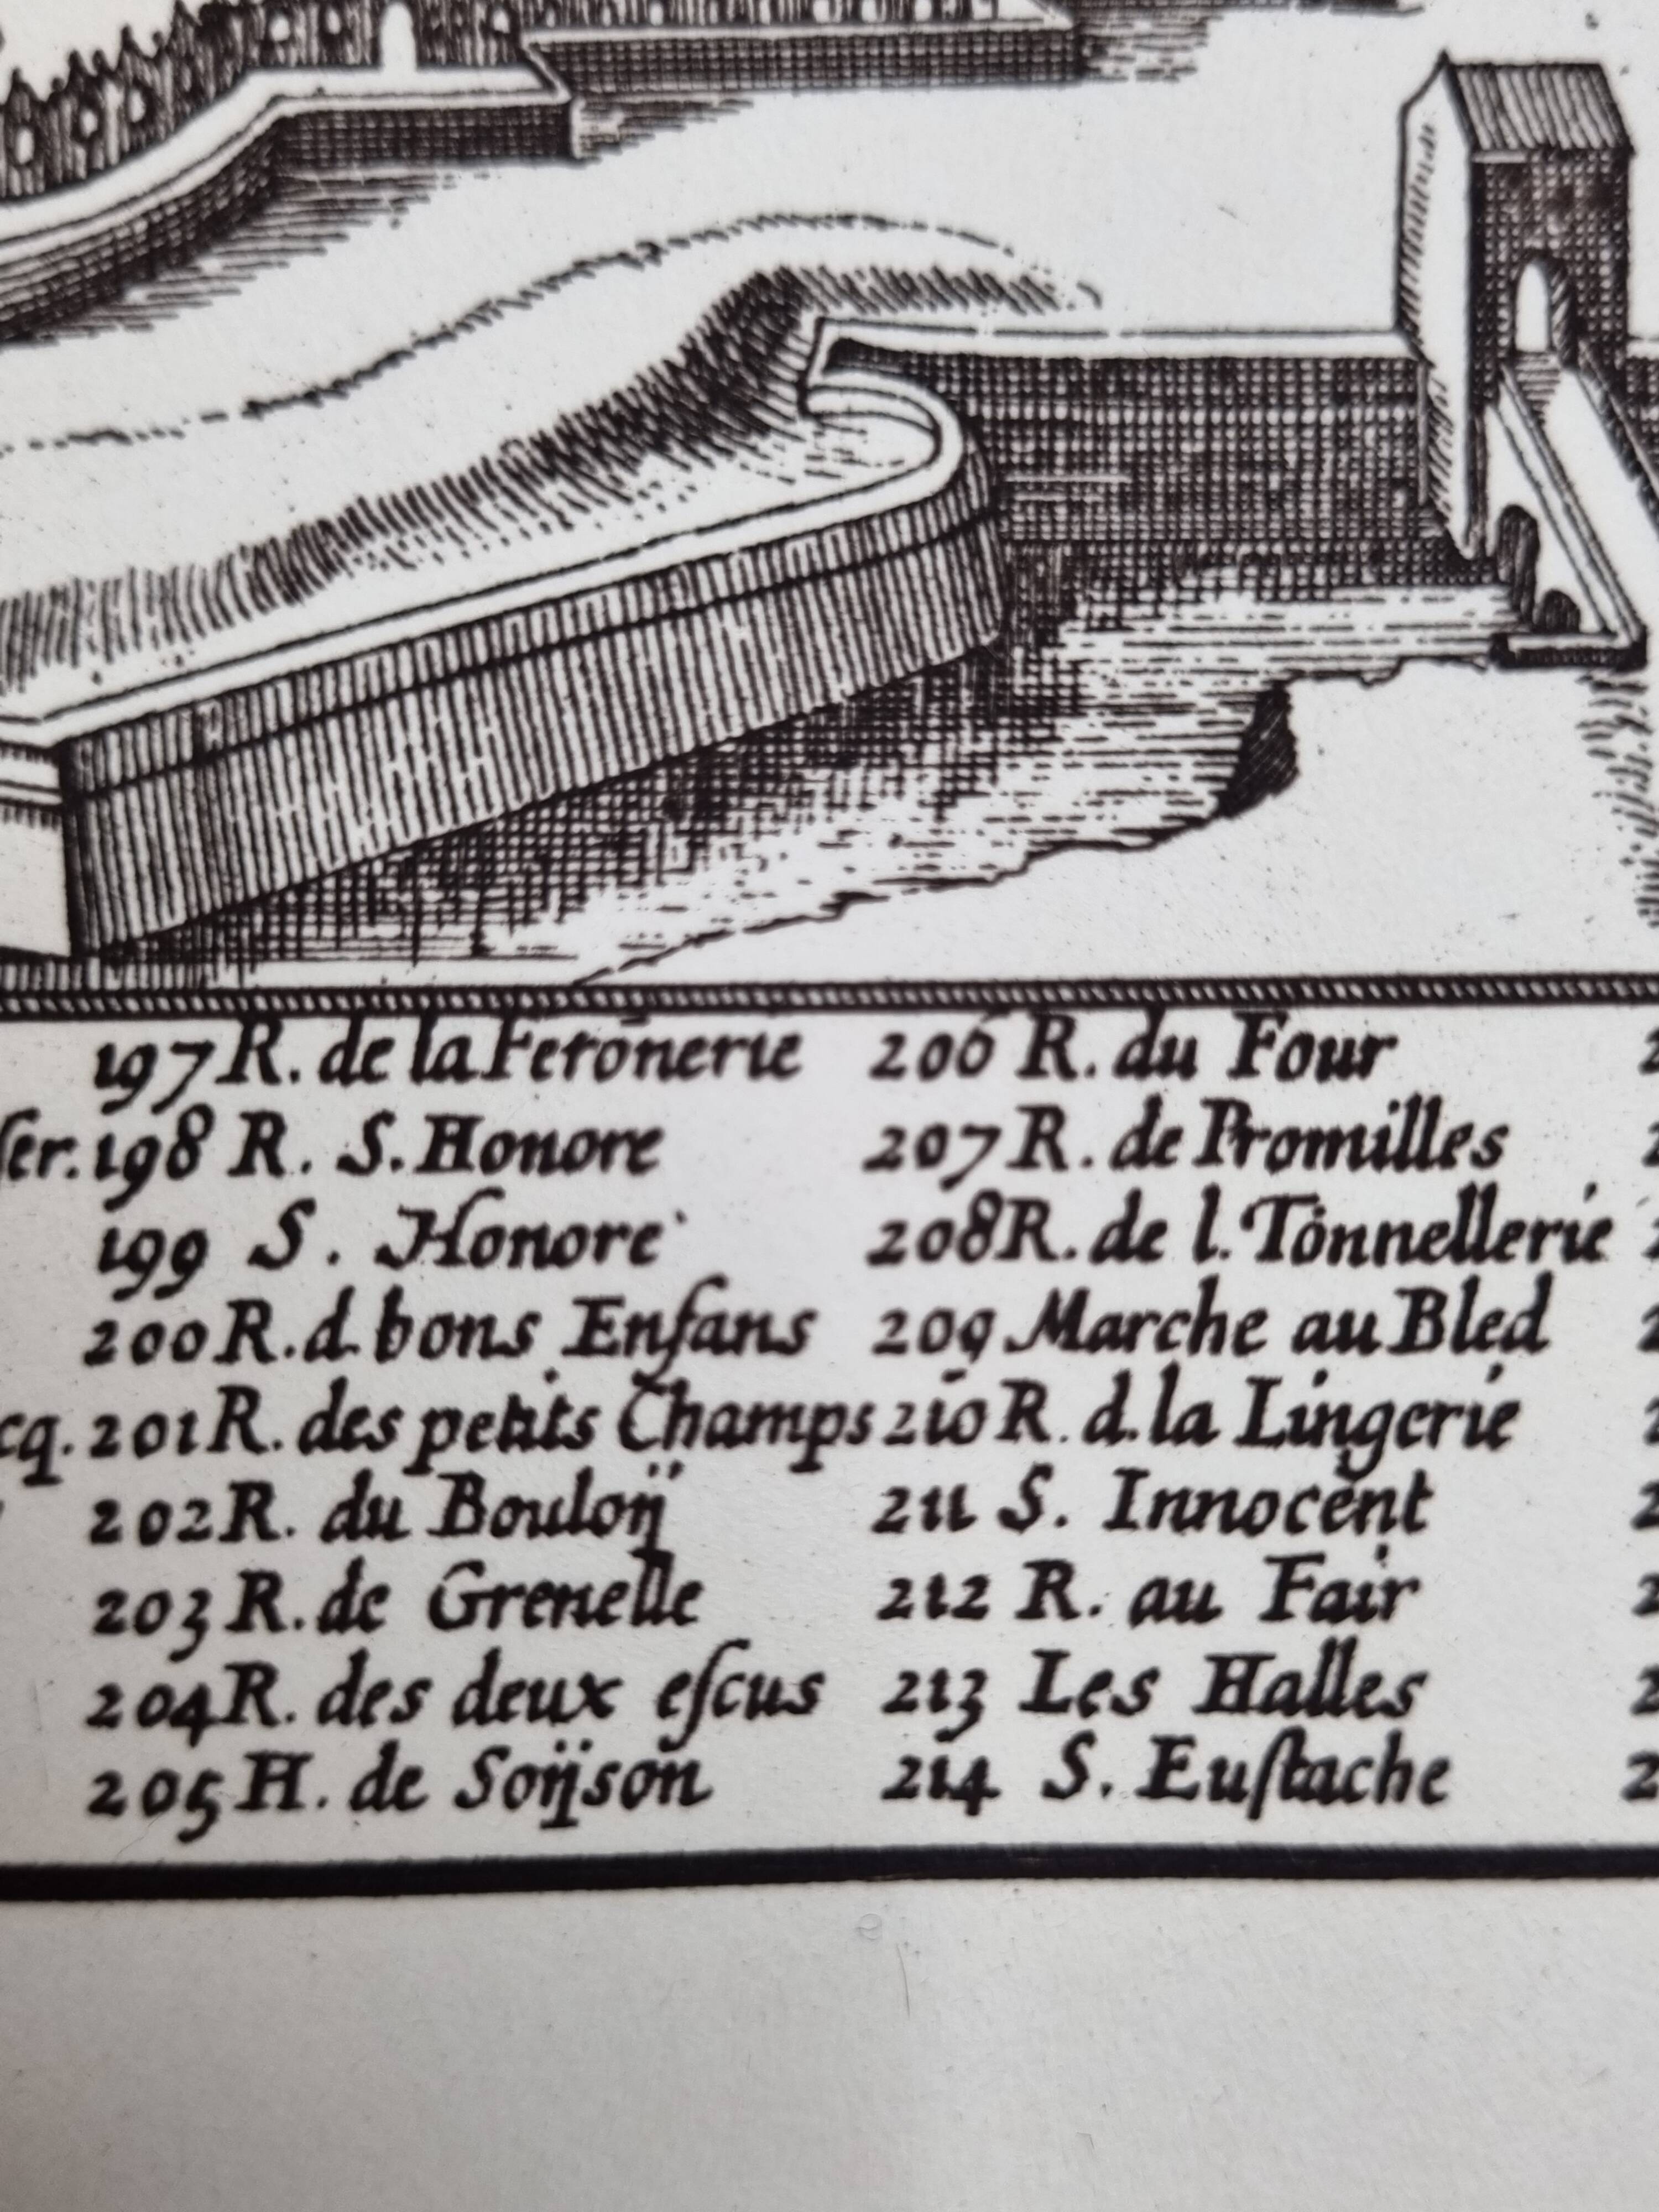 197 R. de la Feronerie
198 R. S. Honore
199 S. Honore
200 R. d. bons Enfans
201 R. des petits Champs
202 R. du Bouloÿ
203 R. de Grenelle
204 R. des deux eſcus
205 H. de Soÿson
206 R. du Four
207 R. de Promilles
208 R. de l. Tonnellerie
209 Marche au Bled
210 R. d. la Lingerie
211 S. Innocent
212 R. au Fair
213 Les Halles
214 S. Euſtache